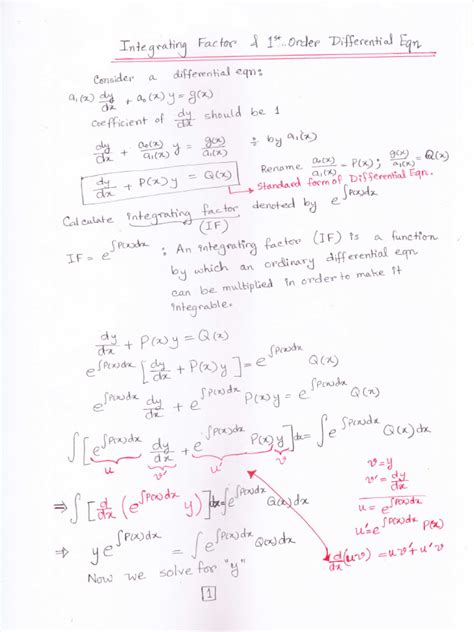 Integrating Factor & 1st Order Differential Eqn
Consider a differential eqn:
a₁(x) dy/dx + a₀(x) y = g(x)
Coefficient of dy/dx should be 1
dy/dx + a₀(x)/a₁(x) y = g(x)/a₁(x) ÷ by a₁(x)
Rename a₀(x)/a₁(x) = P(x); g(x)/a₁(x) = Q(x)
dy/dx + P(x)y = Q(x)
Standard form of Differential Eqn.
Calculate integrating factor denoted by e^∫P(x)dx
(IF)
IF = e^∫P(x)dx : An integrating factor (IF) is a function
by which an ordinary differential eqn
can be multiplied in order to make it
integrable.
dy/dx + P(x)y = Q(x)
e^∫P(x)dx [dy/dx + P(x)y] = e^∫P(x)dx Q(x)
e^∫P(x)dx dy/dx + e^∫P(x)dx P(x)y = e^∫P(x)dx Q(x)
∫[e^∫P(x)dx dy/dx + e^∫P(x)dx P(x)y]dx = ∫e^∫P(x)dx Q(x)dx
u v' u' v
v = y
v' = dy/dx
u = e^∫P(x)dx
u' = e^∫P(x)dx P(x)
⇒ ∫[d/dx (e^∫P(x)dx y)]dx = ∫e^∫P(x)dx Q(x)dx
d/dx(uv) = uv' + u'v
⇒ ye^∫P(x)dx = ∫e^∫P(x)dx Q(x)dx
Now we solve for "y"
1